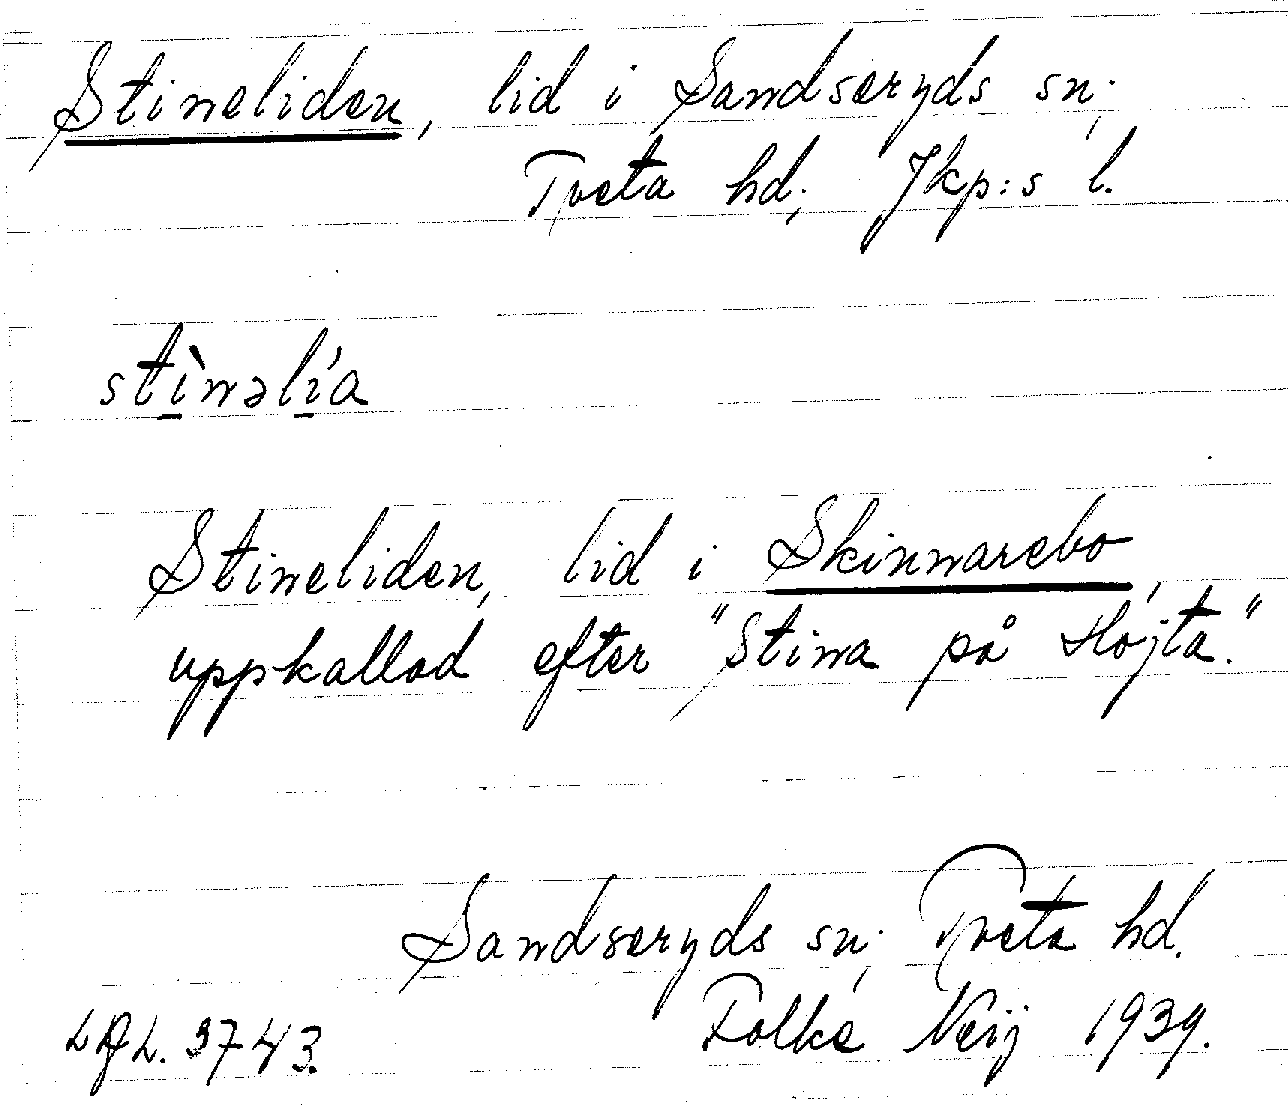 Stineliden, lid i Sandseryds sn;
Tveta hd; Jkp:s l.
stìnəlía
Stineliden, lid i Skinnarebo,
uppkallad efter "Stina på Höjta."
Sandseryds sn; Tveta hd.
LAL. 3743. Folke Neij 1939.